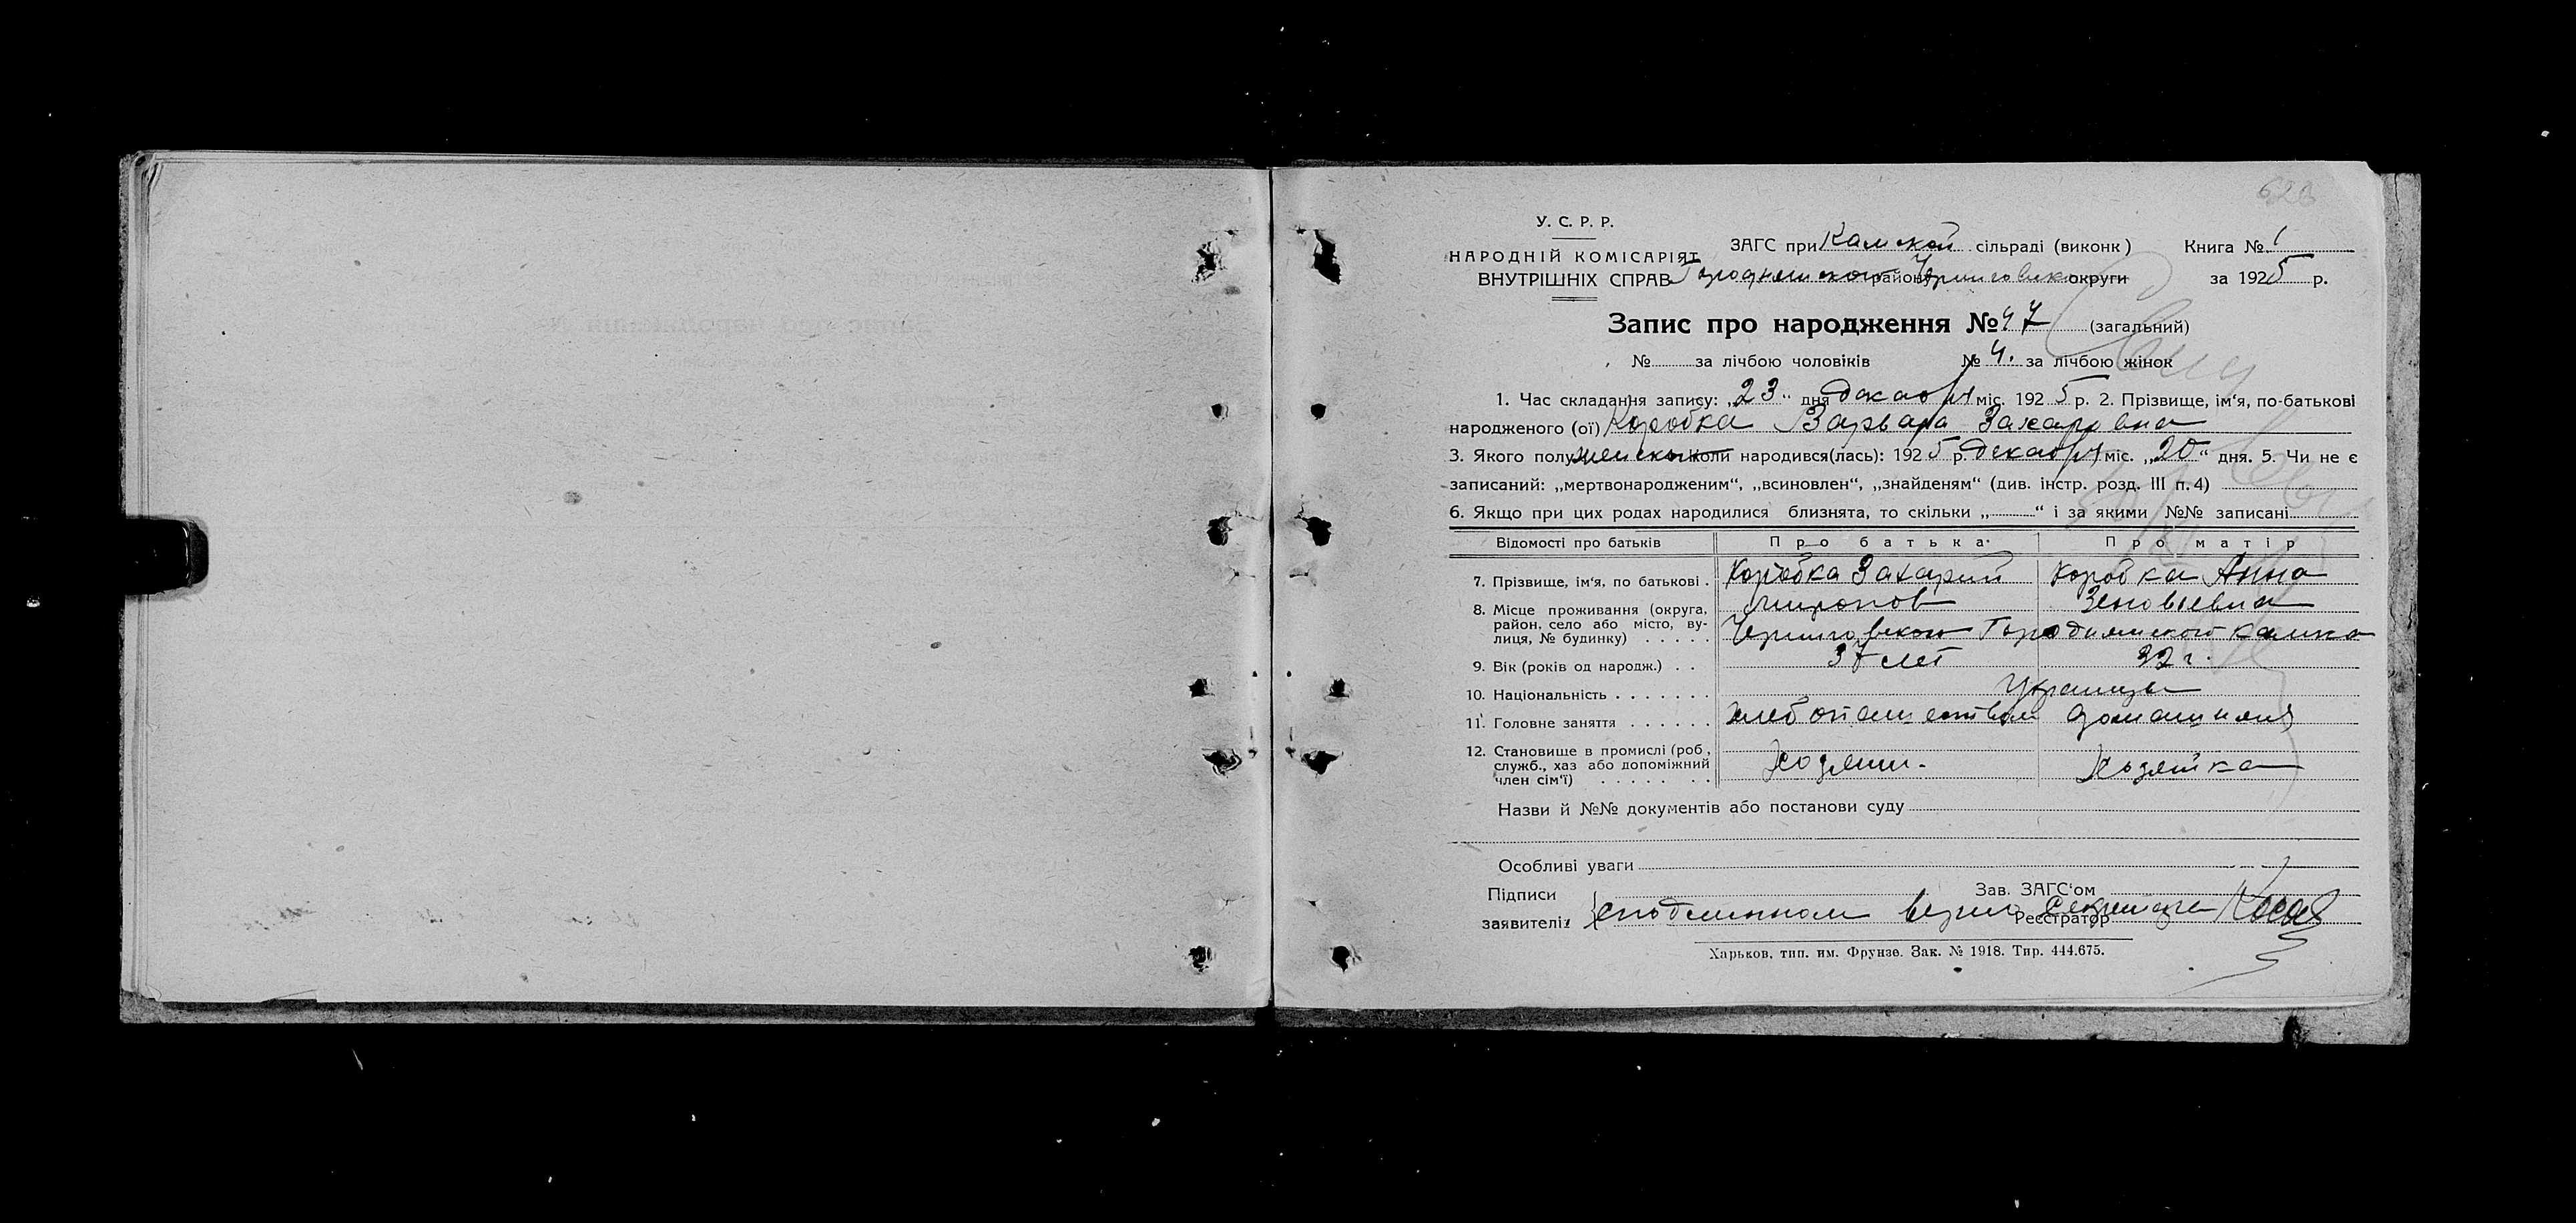 628
У. С. Р. Р.
НАРОДНІЙ КОМІСАРІЯТ
ВНУТРІШНІХ СПРАВ
ЗАГС при Камской сільраді (виконк) Книга № 1
Городнянского району Черниговской округи за 1925 р.
Запис про народження № 47 (загальний)
№ за лічбою чоловіків № 4. за лічбою жінок
1. Час складання запису: „23“ дня декабря міс. 1925 р. 2. Прізвище, ім‘я, по-батькові
народженого (ої) Коробка Варвара Захаровна
3. Якого полу женского коли народився(лась): 1925 р. декабря міс. „20“ дня. 5. Чи не є
записаний: „мертвонародженим“, „всиновлен“, „знайденям“ (див. інстр. розд. III п. 4)
6. Якщо при цих родах народилися близнята, то скільки „ “ і за якими №№ записані
Відомості про батьків Про батька Про матір
7. Прізвище, ім‘я, по батькові . Коробка Захарий Коробка Анна
8. Місце проживання (округа, Миронов Зеновьевна
район, село або місто, ву-
лиця, № будинку) . . . . . Черниговского Городнянского Камка
9. Вік (років од народж.) . . 37 лет 32 г.
10. Національність . . . . . . . Украинцы
11. Головне заняття . . . . . . хлебопашеством домашняя
12. Становище в промислі (роб.,
служб., хаз або допоміжний Хозяин. Хозяйка
член сім‘ї) . . . . . . .
Назви й №№ документів або постанови суду
Особливі уваги
Підписи Зав. ЗАГС‘ом
заявителів с подлинном верно Реєстратор Секретарь
Харьков, тип. им. Фрунзе. Зак. № 1918. Тир. 444.675.